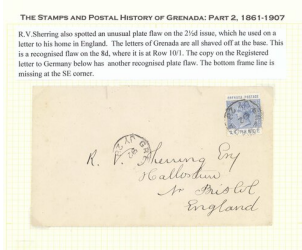 THE STAMPS AND POSTAL HISTORY OF GRENADA: PART 2, 1861-1907
R.V.Sherring also spotted an unusual plate flaw on the 2½d issue, which he used on a
letter to his home in England. The letters of Grenada are all shaved off at the base. This
is a recognised flaw on the 8d, where it is at Row 10/1. The copy on the Registered
letter to Germany below has another recognised plate flaw. The bottom frame line is
missing at the SE corner.
R. V. Sherring Esq
Hallatrow
Nr Bristol
England